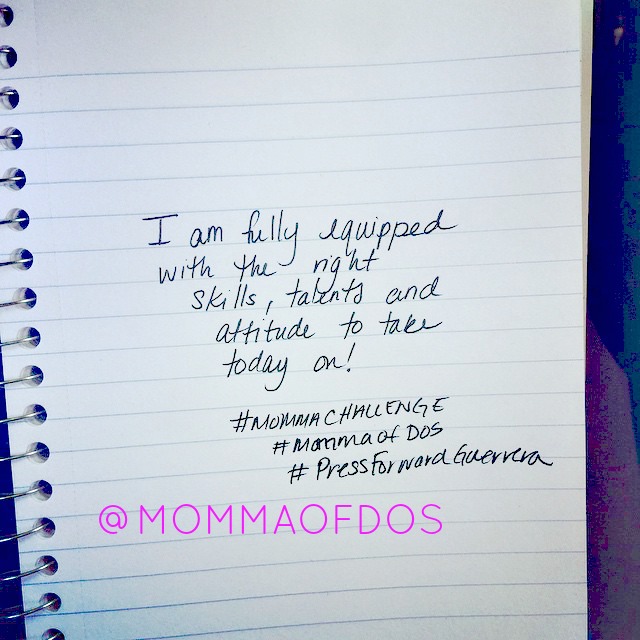 I am fully equipped
with the right
skills, talents and
attitude to take
today on!
#MOMMACHALLENGE
#MommaofDOS
#PressForwardGuerrera
@MOMMAOFDOS